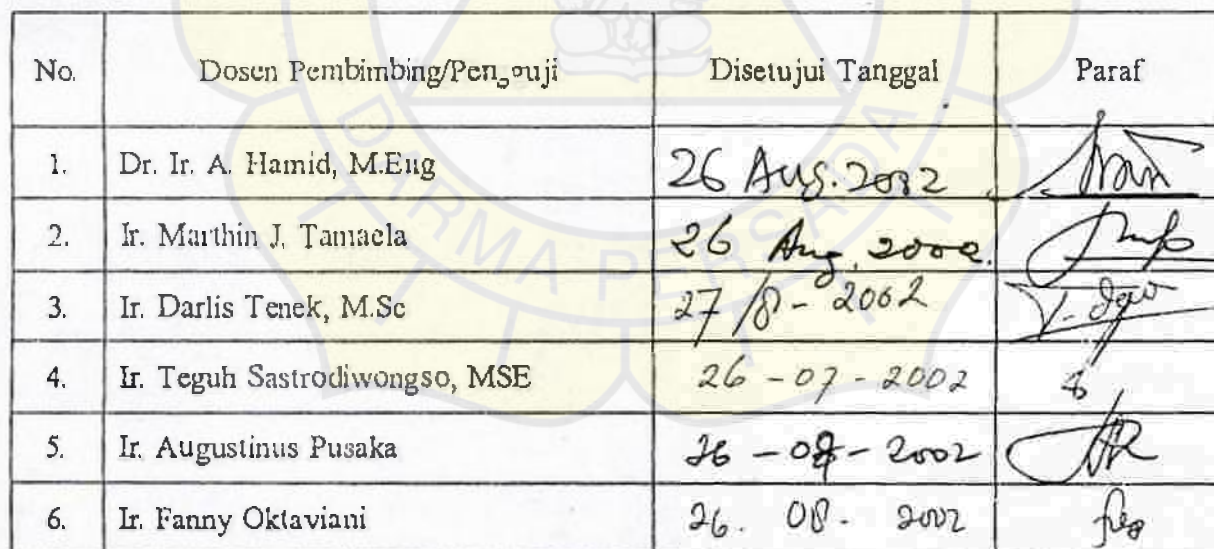 No. Dosen Pembimbing/Penguji Disetujui Tanggal Paraf
1. Dr. Ir. A. Hamid, M.Eng 26 Aug. 2002
2. Ir. Marthin J. Tamaela 26 Aug. 2002.
3. Ir. Darlis Tenek, M.Sc 27/8 - 2002
4. Ir. Teguh Sastrodiwongso, MSE 26 - 07 - 2002
5. Ir. Augustinus Pusaka 26 - 08 - 2002
6. Ir. Fanny Oktaviani 26. 08. 2002
DARMA PERSADA